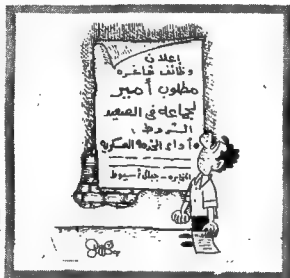 إعلان
وظائف شاغره
مطلوب أمير
لجماعة في الصعيد
الشروط :
وأداء الخدمة العسكرية
المخابره - جبال أسيوط